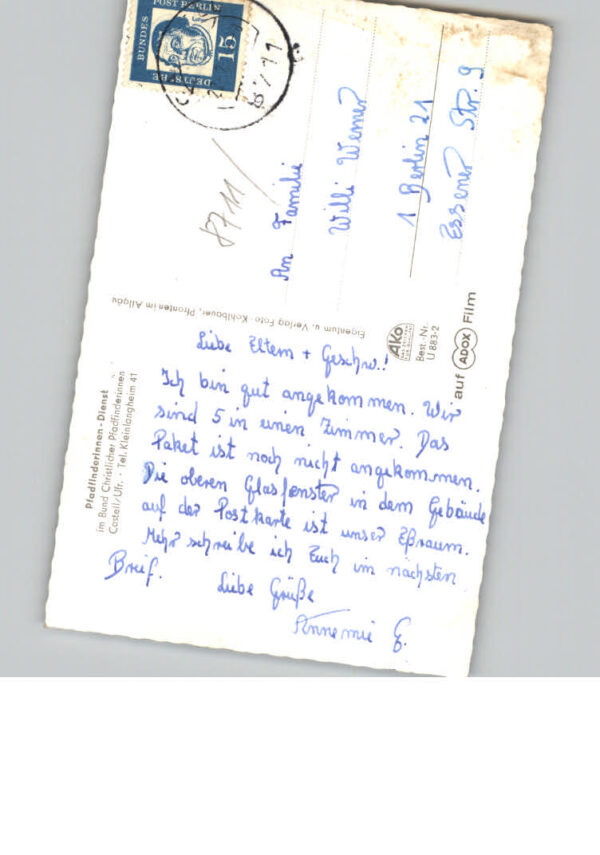 DEUTSCHE
BUNDES
POST BERLIN
15
8711
An Familie
Willi Werner
1 Berlin 21
Essener Str. 9
Eigentum u. Verlag Foto-Kohlbauer, Pfronten im Allgäu
AKo
Best.-Nr.
U 883-2
auf ADOX Film
Pfadfinderinnen-Dienst
im Bund Christlicher Pfadfinderinnen
Castell/Ufr. · Tel. Kleinlangheim 41
Liebe Eltern + Geschw.!
Ich bin gut angekommen. Wir
sind 5 in einen Zimmer. Das
Paket ist noch nicht angekommen.
Die oberen Glasfenster in dem Gebäude
auf der Postkarte ist unser Eßraum.
Mehr schreibe ich Euch im nächsten
Brief. Liebe Grüße
Annemie G.